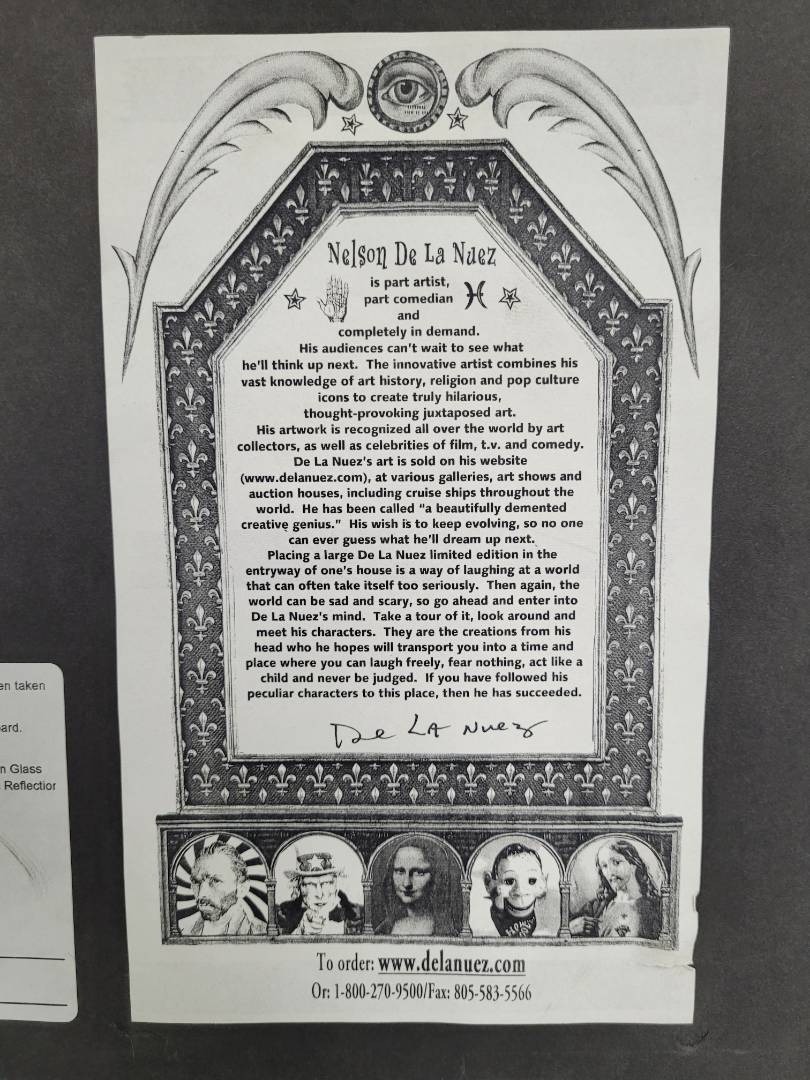 Nelson De La Nuez
is part artist,
part comedian
and
completely in demand.
His audiences can't wait to see what
he'll think up next. The innovative artist combines his
vast knowledge of art history, religion and pop culture
icons to create truly hilarious,
thought-provoking juxtaposed art.
His artwork is recognized all over the world by art
collectors, as well as celebrities of film, t.v. and comedy.
De La Nuez's art is sold on his website
(www.delanuez.com), at various galleries, art shows and
auction houses, including cruise ships throughout the
world. He has been called "a beautifully demented
creative genius." His wish is to keep evolving, so no one
can ever guess what he'll dream up next.
Placing a large De La Nuez limited edition in the
entryway of one's house is a way of laughing at a world
that can often take itself too seriously. Then again, the
world can be sad and scary, so go ahead and enter into
De La Nuez's mind. Take a tour of it, look around and
meet his characters. They are the creations from his
head who he hopes will transport you into a time and
place where you can laugh freely, fear nothing, act like a
child and never be judged. If you have followed his
peculiar characters to this place, then he has succeeded.
De LA Nuez
To order: www.delanuez.com
Or: 1-800-270-9500/Fax: 805-583-5566
en taken
ard.
n Glass
Reflection